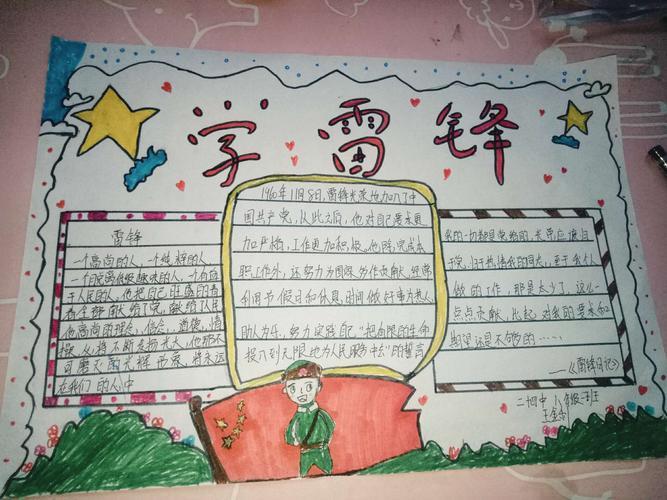 学雷锋
雷锋
一个高尚的人，一个纯粹的人
一个脱离低级趣味的人，一个有益
于人民的人，他把自己旺盛的青
春全部献给了党，献给了人民
他高尚的理念、信念、道德、情
操，必将不断发扬光大，他那不
可磨灭的光辉形象，将永远
在我们的人中
1960年11月8日，雷锋光荣地加入了中
国共产党，从此之后，他对自己要求更
加严格，工作更加积极。他除完成本
职工作外，还努力为国家多作贡献，经常
利用节假日和休息时间做好事为他人
助人为乐，努力实践自己"把有限的生命
投入到无限地为人民服务中去"的誓言
我的一切都是党给的，光荣应该归
于党，归于热情我的同志，至于我个人
做的工作，那是太少了，这么一
点点贡献，比起对我的要求和
期望还是不够的……
——《雷锋日记》
二十四中 八年级二班